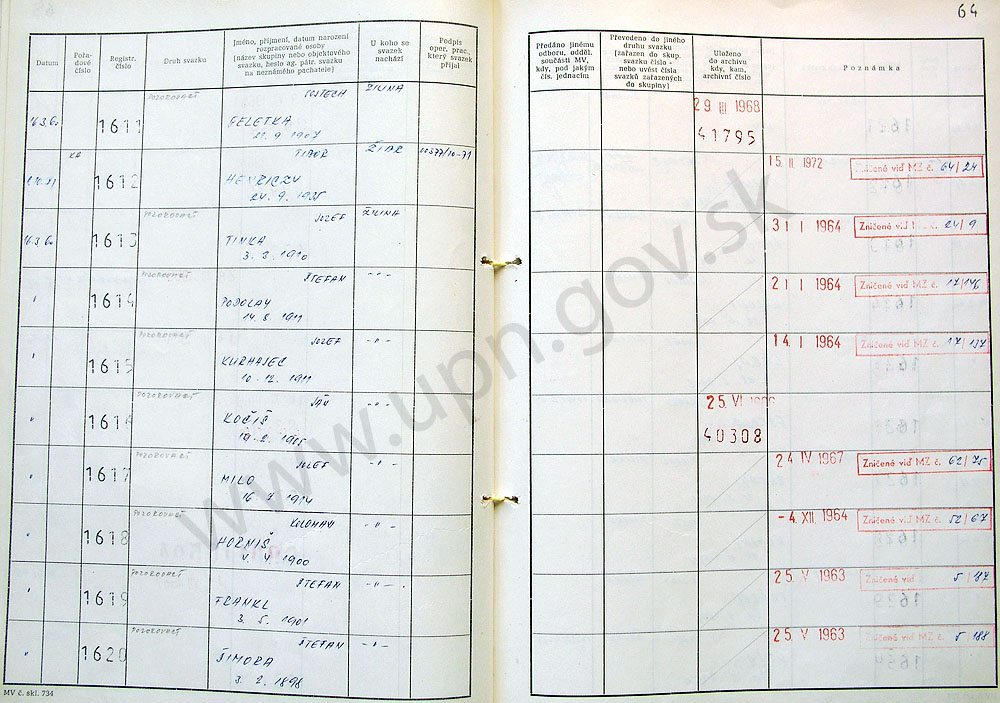 64
Datum
Pořa-
dové
číslo
Registr.
číslo
Druh svazku
Jméno, příjmení, datum narození
rozpracované osoby
(název skupiny nebo objektového
svazku, heslo ag. pátr. svazku
na neznámého pachatele)
U koho se
svazek
nachází
Podpis
oper. prac.,
který svazek
přijal
Předáno jinému
odboru, odděl.
součásti MV,
kdy, pod jakým
čís. jednacím
Převedeno do jiného
druhu svazku
(zařazen do skup.
svazku číslo -
nebo uvést čísla
svazků zařazených
do skupiny)
Uloženo
do archivu
kdy, kam,
archivní číslo
Poznámka
16.3.60 1611 POZOROVACÍ VOJTECH ŽILINA 29 III 1968
FELETKA 41795
1907
KR 1612 TIBOR ŽIAR 15. II. 1972 Zničené viď MZ č. 64/24
24. 9. 1935
16.3.60 1613 POZOROVACÍ JOZEF ŽILINA 31 I 1964 Zničené viď MZ č. 24/9
TINKA
3. 3. 1910
" 1614 POZOROVACÍ ŠTEFAN -"- 21 I 1964 Zničené viď MZ č. 17/146
PODOLAY
14. 8. 1911
" 1615 POZOROVACÍ JOZEF -"- 14. I 1964 Zničené viď MZ č. 17/137
KURHAJEC
10. 12. 1911
" 161 POZOROVACÍ JÁN -"- 25. VI
KOČIŠ 40308
" 1617 POZOROVACÍ JOZEF -"- 24 IV 1967 Zničené viď MZ č. 62/75
MILO
16. 7. 1914
" 1618 POZOROVACÍ KOLOMAN -"- -4. XII. 1964 Zničené viď MZ č. 52/67
HORNIŠ
4. 4. 1900
" 1619 POZOROVACÍ ŠTEFAN -"- 25. V 1963 Zničené viď 5/187
FRANKL
3. 5. 1901
" 1620 POZOROVACÍ ŠTEFAN -"- 25. V 1963 Zničené viď MZ č. 5/188
ŠIMORA
3. 2. 1898
MV č. skl. 734
www.upn.gov.sk